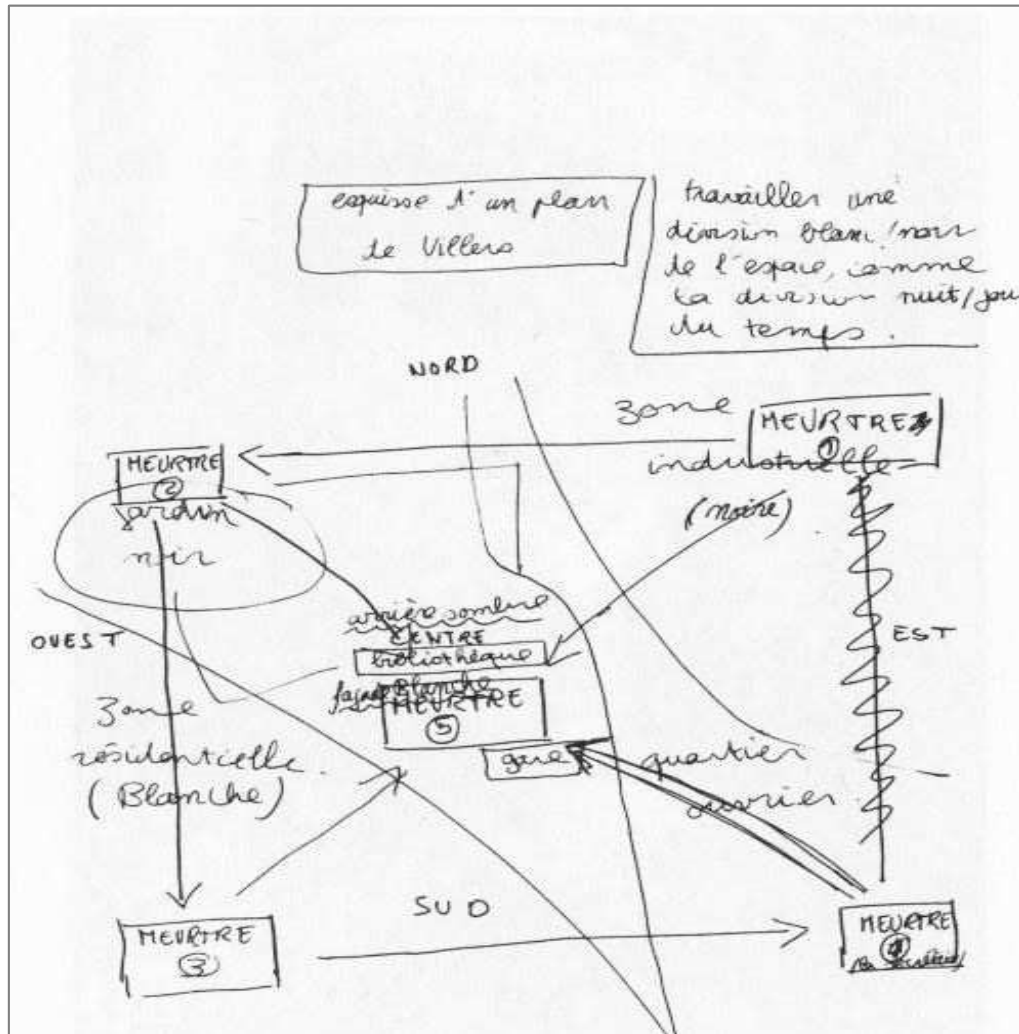 esquisse d'un plan
de Villers
travailler une
division blanc/noir
de l'espace, comme
la division nuit/jou
du temps.
NORD
zone
MEURTRE
1
industrielle
(noire)
MEURTRE
2
jardin
noir
OUEST
arrière sombre
CENTRE
bibliothèque
façade blanche
MEURTRE
5
gare
EST
zone
résidentielle
(Blanche)
quartier
ouvrier
SUD
MEURTRE
3
MEURTRE
4